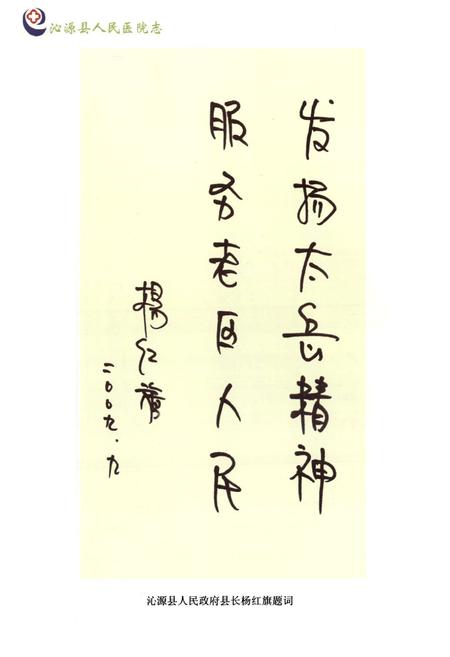 沁源县人民医院志
发扬太岳精神
服务老区人民
杨红旗
二〇〇九.九
沁源县人民政府县长杨红旗题词